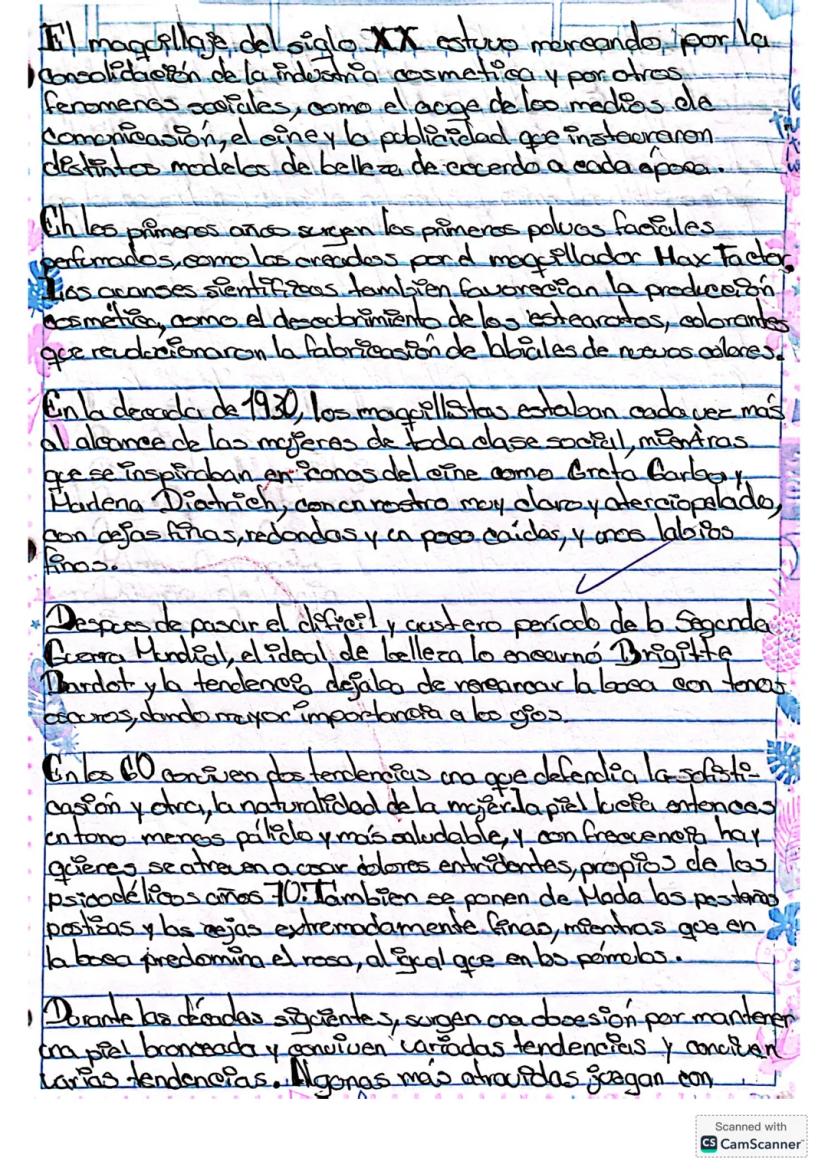 El maquillaje, del siglo XX estuvo mercando, por la
consolidación de la industria cosmetica y por otros
fenomenos sociales, como el auge de los medios de
comunicasión, el cine y la publicidad que instauraron
distintos modelos de belleza de acuerdo a cada época.
En los primeros años surgen los primeros polvos faciales
perfumados, como los creados por el maquillador Max Factor,
Los avanses sientificos tambien favorecian la producción
cosmética, como el descubrimiento de los estearatos, colorantes
que revolucionaron la fabricasión de labiales de nuevos colores.
En la decada de 1930, los maquillistas estaban cada vez más
al alcance de las mujeres de toda clase social, mientras
que se inspiraban en iconos del cine como Greta Garbo y
Marlena Diatrich, con un rostro muy claro y aterciopelado,
con cejas finas, redondas y un poco caídas, y unos labios
finos.
Despues de pasar el dificil y austero período de la Segunda
Guerra Mundial, el ideal de belleza lo encarnó Brigitte
Bardot y la tendencia dejaba de remarcar la boca con tonos
oscuros, dando mayor importancia a los ojos.
En los 60 conviven dos tendencias una que defendia la sofisti-
casión y otra, la naturalidad de la mujer. la piel lucia entonces
un tono menos pálido y más saludable, y con frecuencia hay
quienes se atreven a usar colores entridentes, propios de los
psicodélicos años 70! Tambien se ponen de Moda las pestañas
postizas y las cejas extremadamente finas, mientras que en
la boca predomina el rosa, al igual que en los pómulos.
Durante las décadas siguientes, surgen una obsesión por mantener
una piel bronceada y conviven variadas tendencias y conviven
varias tendencias. Algunas más atrevidas juegan con
Scanned with
CS CamScanner